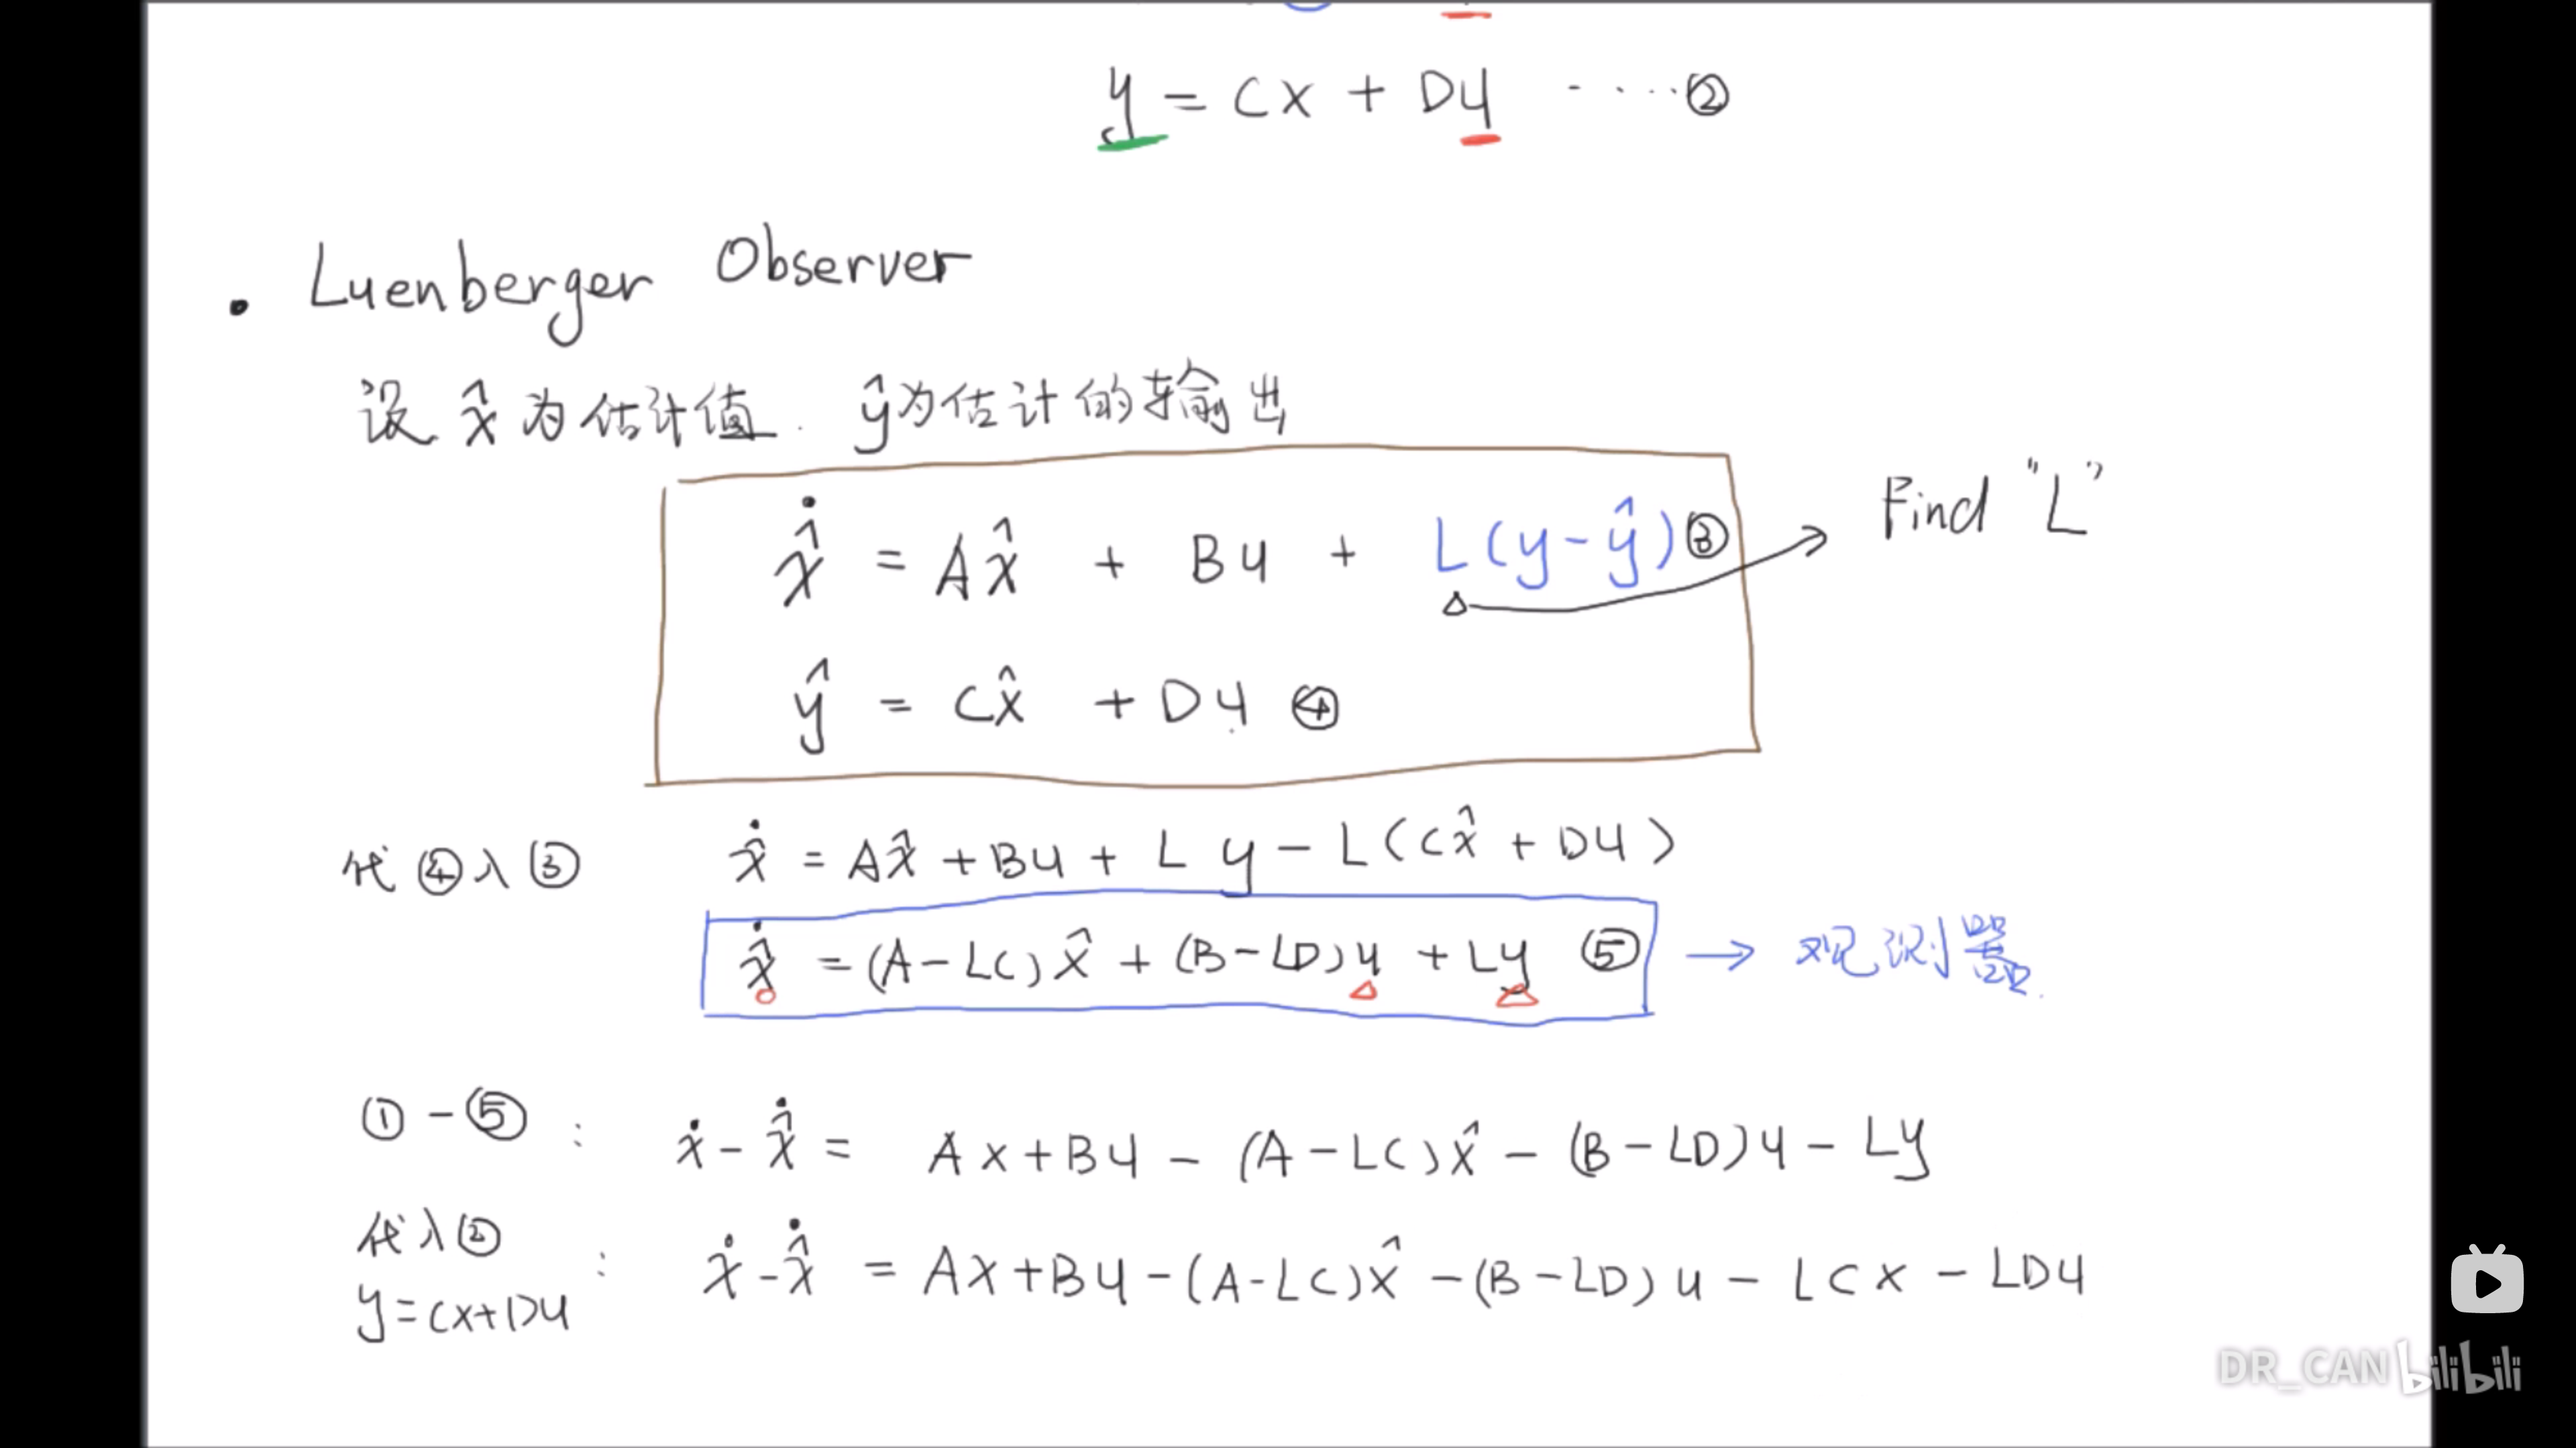 y = Cx + Du ·····②
· Luenberger Observer
设 x̂ 为估计值. ŷ为估计的输出
Find "L"
x̂̇ = Ax̂ + Bu + L(y-ŷ)③
ŷ = Cx̂ + Du ④
代④入③ x̂̇ = Ax̂ + Bu + Ly - L(Cx̂ + Du)
x̂̇ = (A-LC)x̂ + (B-LD)u + Ly ⑤ → 观测器.
①-⑤ : ẋ - x̂̇ = Ax + Bu - (A-LC)x̂ - (B-LD)u - Ly
代入② : ẋ - x̂̇ = Ax + Bu - (A-LC)x̂ - (B-LD)u - LCx - LDu
y=Cx+Du
DR_CAN bilibili